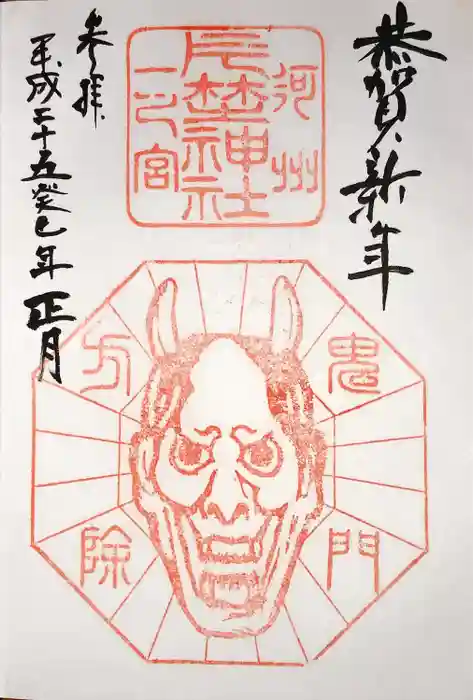 恭賀新年
河州
片埜神社
一之宮
参拝
平成二十五癸巳年 正月
鬼門
方除